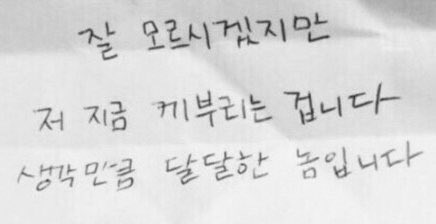 잘 모르시겠지만
저 지금 께부리는 겁니다
생각만큼 달달한 놈입니다